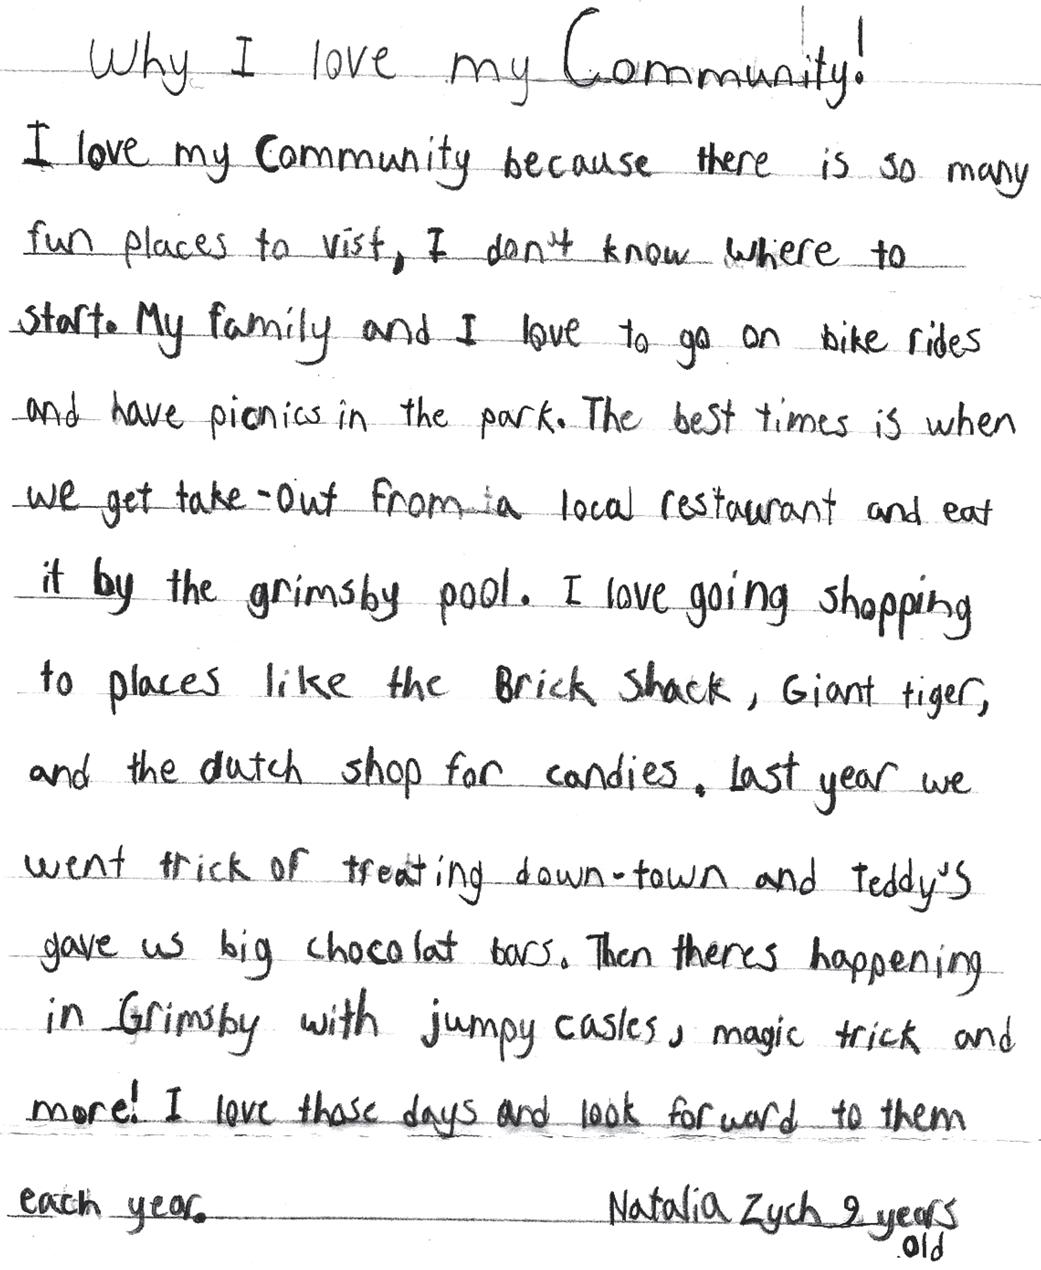 Why I love my Community!
I love my Community because there is so many
fun places to vist, I don't know where to
start. My family and I love to go on bike rides
and have picnics in the park. The best times is when
we get take-out from a local restaurant and eat
it by the grimsby pool. I love going shopping
to places like the Brick Shack, Giant tiger,
and the dutch shop for candies. Last year we
went trick or treating down-town and Teddy's
gave us big chocolat bars. Then theres happening
in Grimsby with jumpy casles, magic trick and
more! I love those days and look forward to them
each year.
Natalia Zych 9 years
old